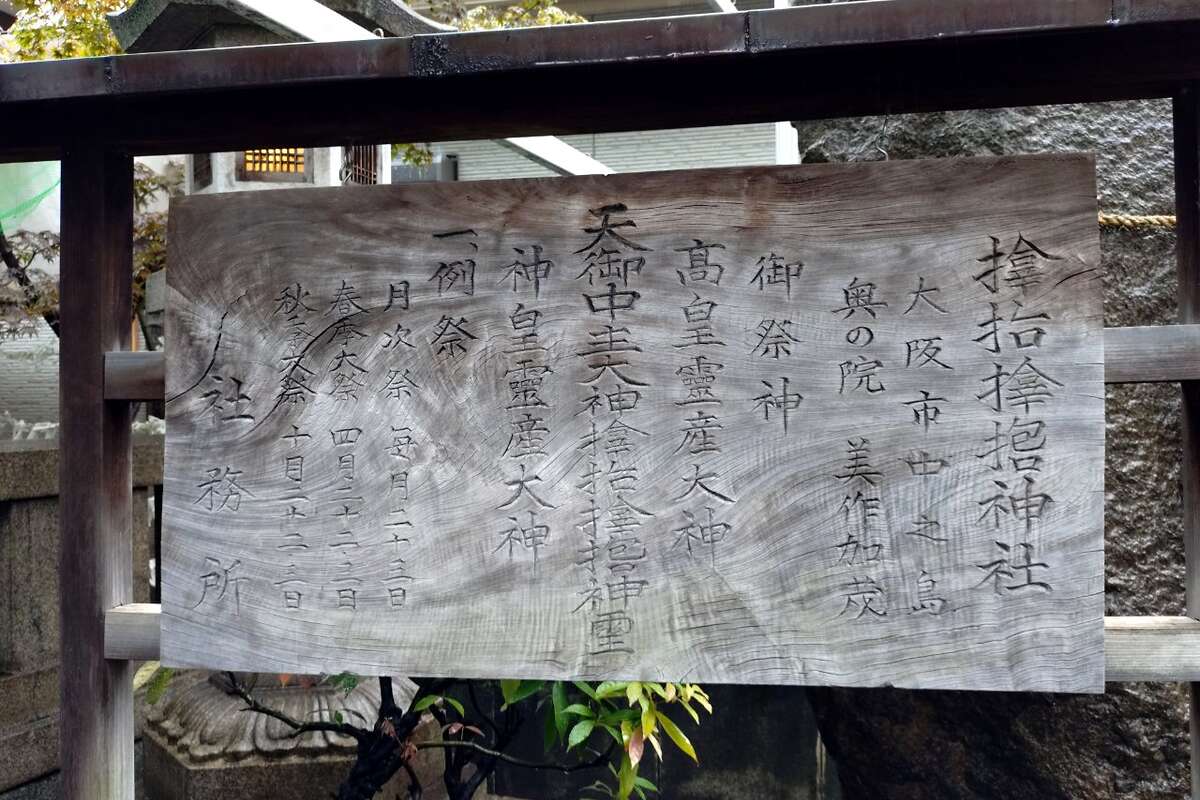 𪮷𫝶𪮇𫝼神社
大阪市中之島
奥の院 美作加茂
御祭神
髙皇靈産大神
天御中主大神𪮷𫝶𪮇𫝼神霊
神皇靈産大神
一、例祭
月次祭 毎月二十三日
春季大祭 四月二十二三日
秋季大祭 十月二十二三日
社務所